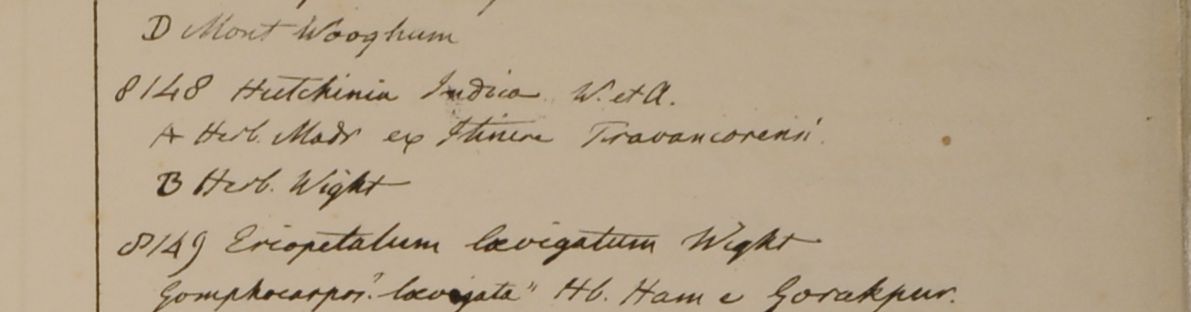 D Mont Wooghum
8148 Hutchinia Indica W. et A.
A Herb. Madr ex Itinere Travancorensi.
B Herb. Wight
8149 Eriopetalum lævigatum Wight
Gomphocarpos? "lævigata" Hb. Ham e Gorakpur.